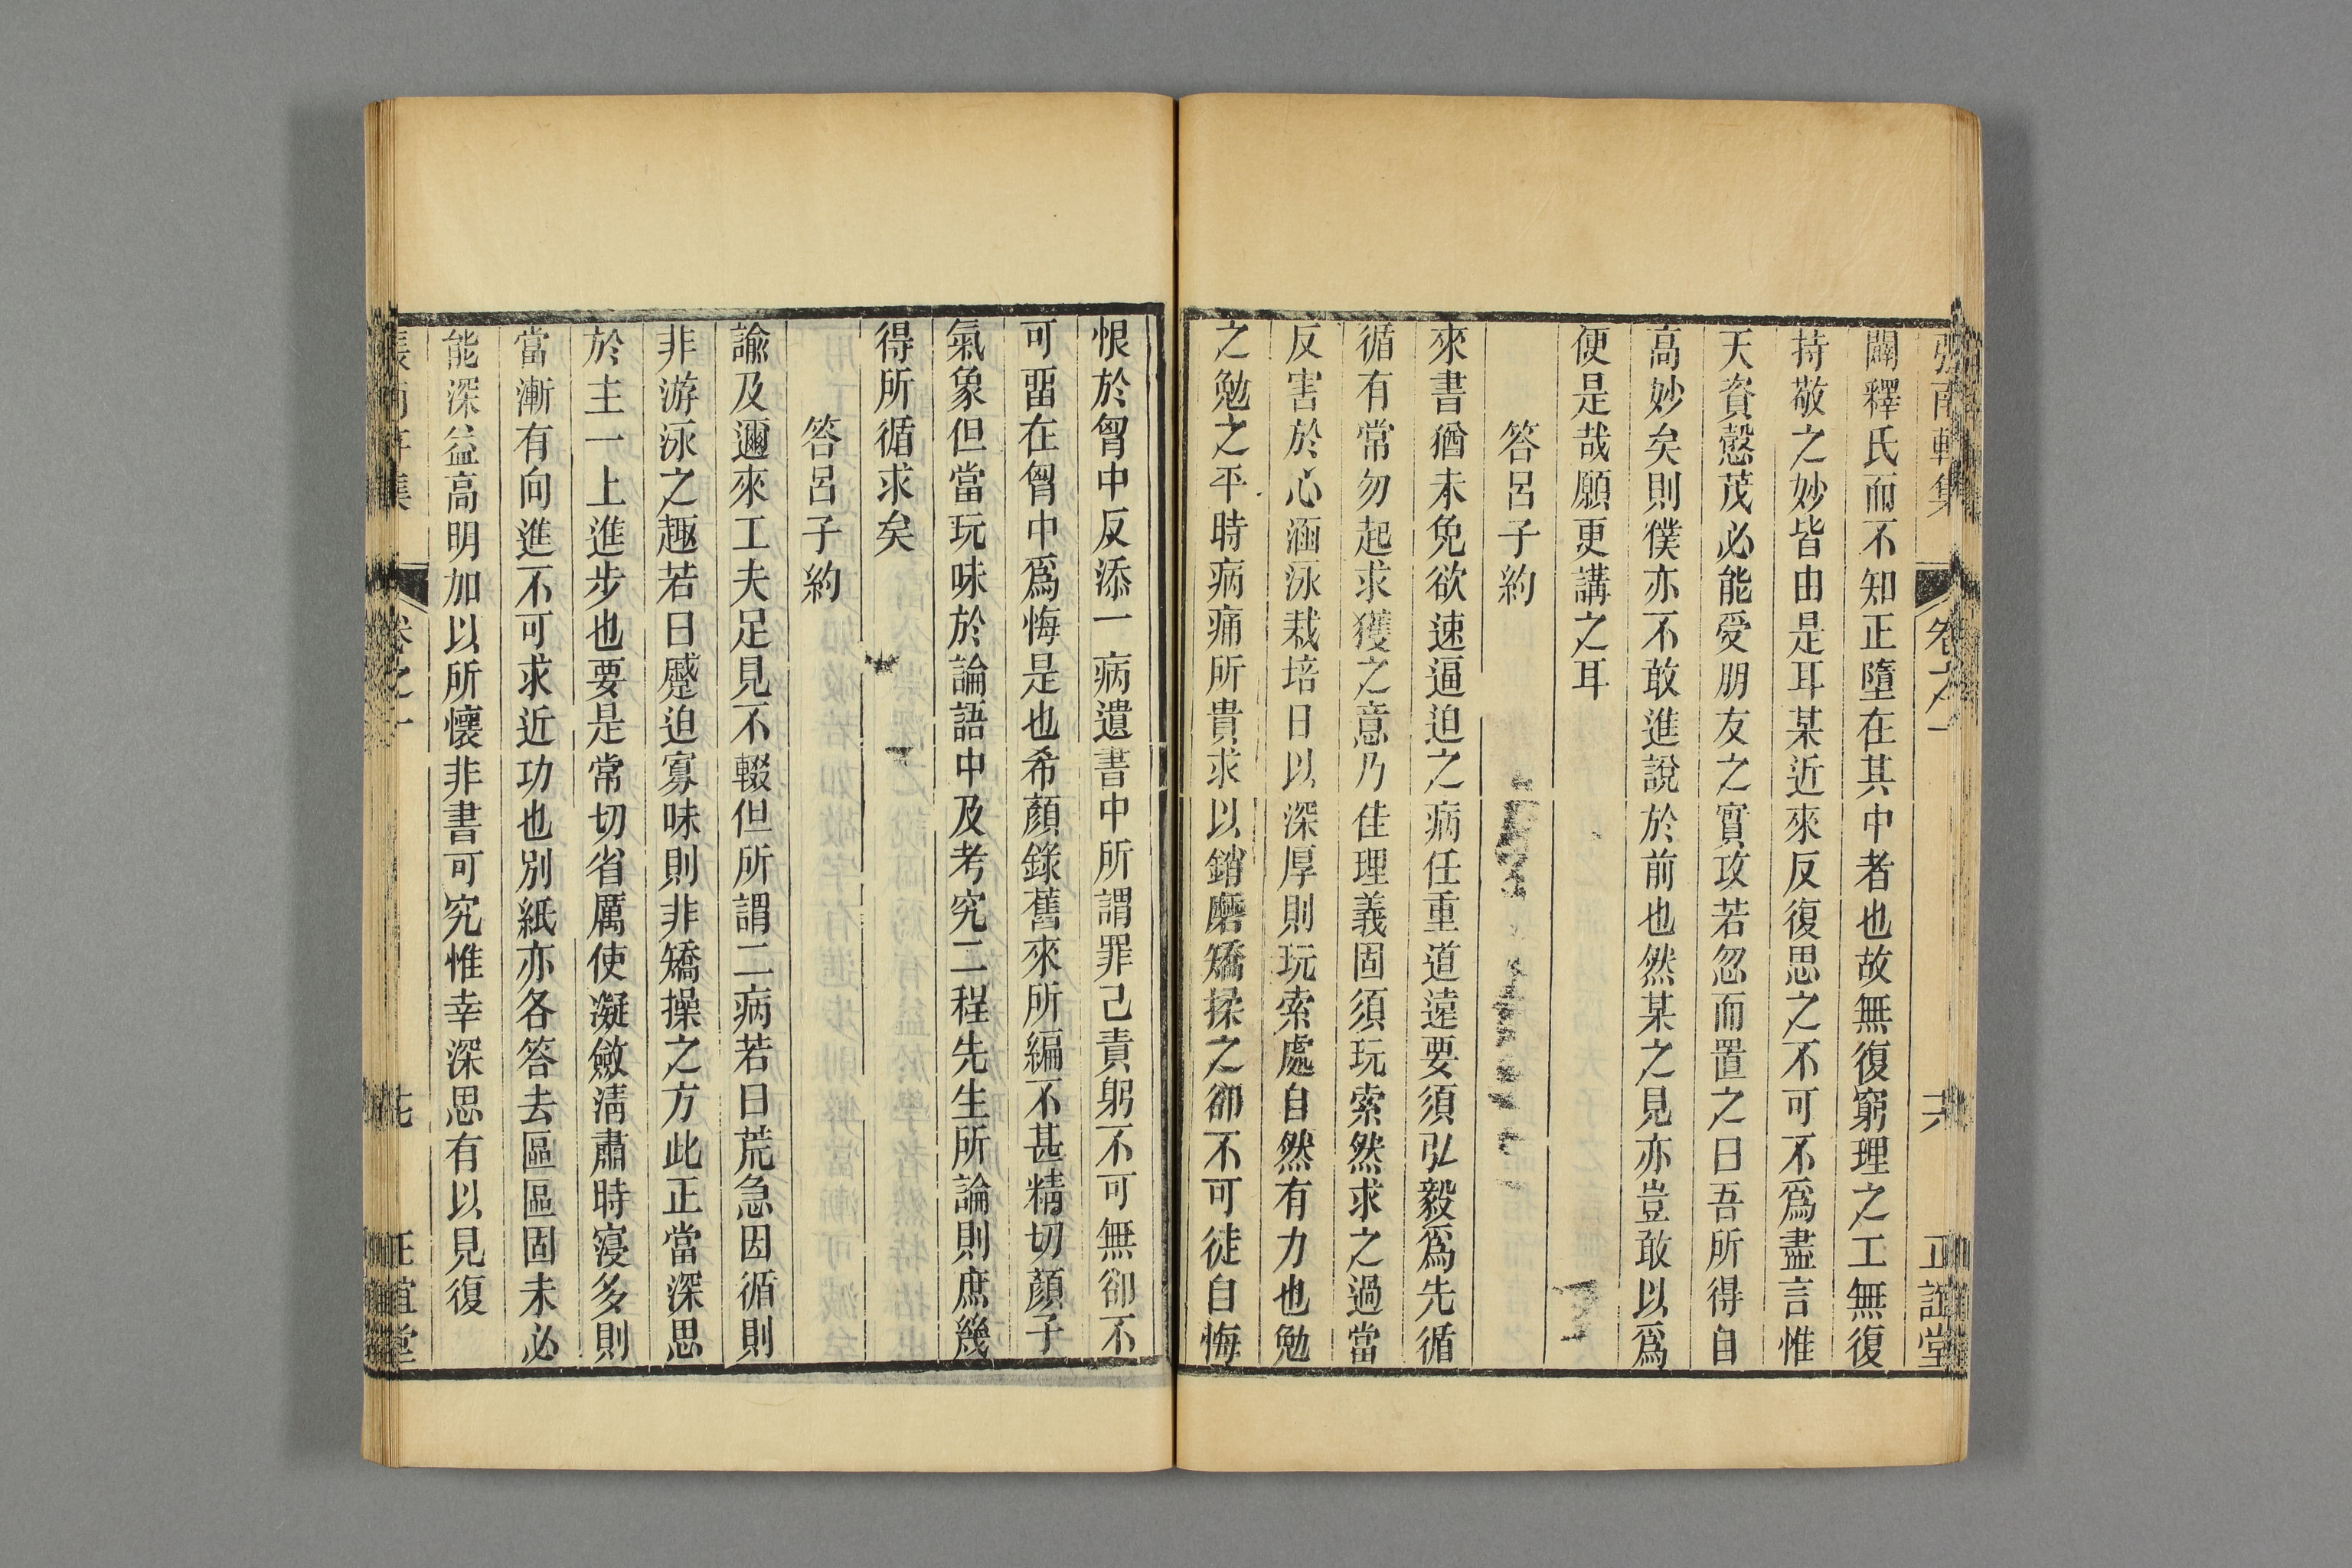 張南軒集 卷之一 六 正誼堂
闢釋氏而不知正墮在其中者也故無復窮理之工無復
持敬之妙皆由是耳某近來反復思之不可不爲盡言惟
天資慤茂必能受朋友之實攻若忽而置之曰吾所得自
高妙矣則僕亦不敢進說於前也然某之見亦豈敢以爲
便是哉願更講之耳
答呂子約
來書猶未免欲速逼迫之病任重道遠要須弘毅爲先循
循有常勿起求獲之意乃佳理義固須玩索然求之過當
反害於心涵泳栽培日以深厚則玩索處自然有力也勉
之勉之平時病痛所貴求以銷磨矯揉之卻不可徒自悔
恨於胷中反添一病遺書中所謂罪己責躬不可無卻不
可畱在胷中爲悔是也希顏錄舊來所編不甚精切顏子
氣象但當玩味於論語中及考究二程先生所論則庶幾
得所循求矣
答呂子約
諭及邇來工夫足見不輟但所謂二病若曰荒急因循則
非游泳之趣若曰蹙迫寡味則非矯操之方此正當深思
於主一上進步也要是常切省厲使凝斂淸肅時寖多則
當漸有向進不可求近功也別紙亦各答去區區固未必
能深益高明加以所懷非書可究惟幸深思有以見復
張南軒集 卷之一 正誼堂